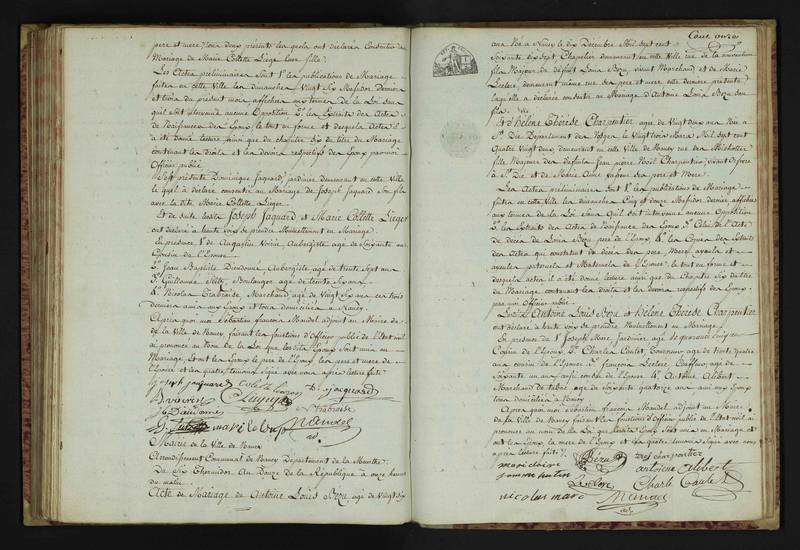 pere et mere tous deux présents lesquels ont déclaré consentir au
Mariage de Marie Collette Liéger leur fille.
Les Actes preliminaires sont 1° les publications de Mariage
faites en cette Ville les dimanches Vingt Six Messidor dernier
et trois du present mois, affichées aux termes de la Loi sans
qu'il soit intervenu aucune Opposition 2° les Extraits des Actes
de Naissance des Epoux, le tout en forme et desquels Actes il
a été donné lecture ainsi que du chapitre Six du titre du Mariage
contenant les droits et les devoirs respectifs des Epoux par moi
Officier public
S'est présenté Dominique Jaquard, jardinier demeurant en cette Ville
lequel a déclaré consentir au Mariage de Joseph Jaquard son fils
avec la dite Marie Collette Lieger.
Et de suite lesdits Joseph Jaquard et Marie Collette Lieger
ont déclaré à haute voix se prendre Mutuellement en Mariage
En présence 1° de Augustin Voirin Aubergiste agé de Soixante ans
Cousin de l'Epouse
2° Jean Baptiste Dieudonné, Aubergiste, agé de trente Sept ans
3° Guillaume Boulanger agé de trente Six ans
4° Nicolas Trabroise Marchand, agé de Vingt Six ans ces trois
derniers amis des Epoux et tous domiciliés à Nancy.
Après quoi moi Sébastien françois Mandel adjoint au Maire de
la Ville de Nancy faisant les fonctions d'Officier public de l'Etat civil
ai prononcé au nom de la Loi que lesdits Epoux Sont unis en
Mariage et ont les Epoux le pere de l'Epoux les pere et mere de
l'Epouse et les quatre temoins Signé avec nous après lecture faite
joseph jacquard Colette D. jacquard
A voirin
Trabroise
Mandel
Mairie de la Ville de Nancy
Arrondissement Communal de Nancy Département de la Meurthe
Du Six Thermidor An Douze de la République à onze heures
du matin.
Acte de Mariage de Antoine Louis Bezu, agé de Vingt Six
Cent onze
ans Né à Nancy le dix Décembre Mil Sept cent
Soixante dix Sept, Chapelier demeurant en cette Ville rue de la
fils Majeur de défunt Louis Bezu, vivant Marchand et de Marie
Leclerc demeurant même rue ses pere et mere cette derniere présente
laquelle a déclaré consentir au Mariage d'Antoine Louis Bezu son
fils
Et d'Hélène Thérèse Charpentier agée de Vingt deux ans Née à
St. Dié Département des Vosges le Vingt trois Mars Mil Sept cent
Quatre Vingt deux, demeurant en cette Ville de Nancy rue des Michottes
fille Majeure des défunts Jean pierre Noël Charpentier vivant
à St. Dié et de Marie Anne ses pere et Mere.
Les Actes préliminaires sont 1° les publications de Mariage
faites en cette Ville les dimanches Cinq et douze Messidor dernier, affichées
aux termes de la Loi sans qu'il soit intervenu aucune Opposition
2° les Extraits des Actes de Naissance des Epoux, 3° Celui de l'Acte
de deces de Louis Bezu pere de l'Epoux, 4° les Copies des Extraits
des Actes qui constatent le deces des pere, Mere, ayeuls et
ayeules paternels et Maternels de l'Epouse; le tout en forme et
desquels actes il a été donné lecture ainsi que du Chapitre Six du titre
du Mariage contenant les droits et les devoirs respectifs des Epoux
par moi Officier public.
Lesdits Antoine Louis Bezu et Hélène Thérèse Charpentier
ont déclaré à haute voix se prendre Mutuellement en Mariage
En présence de 1° Joseph Marc, Jardinier agé de quarante cinq ans
Cousin de l'Epoux 2° Charles Caulet Tourneur agé de trente
ans cousin de l'Epoux 3° françois Leclerc agé de
Soixante un ans oncle de l'Epoux 4° Antoine Alibert
Marchand de tabac agé de Soixante quatorze ans ami des Epoux
tous domiciliés à Nancy
Après quoi moi Sébastien françois Mandel adjoint au Maire
de la Ville de Nancy faisant les fonctions d'Officier public de l'Etat civil ai
prononcé au nom de la Loi que lesdits Epoux Sont unis en Mariage et
ont les Epoux, la mere de l'Epoux et les quatre temoins Signé avec nous
après lecture faite
Bezu charpentier
marie claire antoine alibert
Leclerc Charle Caulet
nicolas marc Mandel